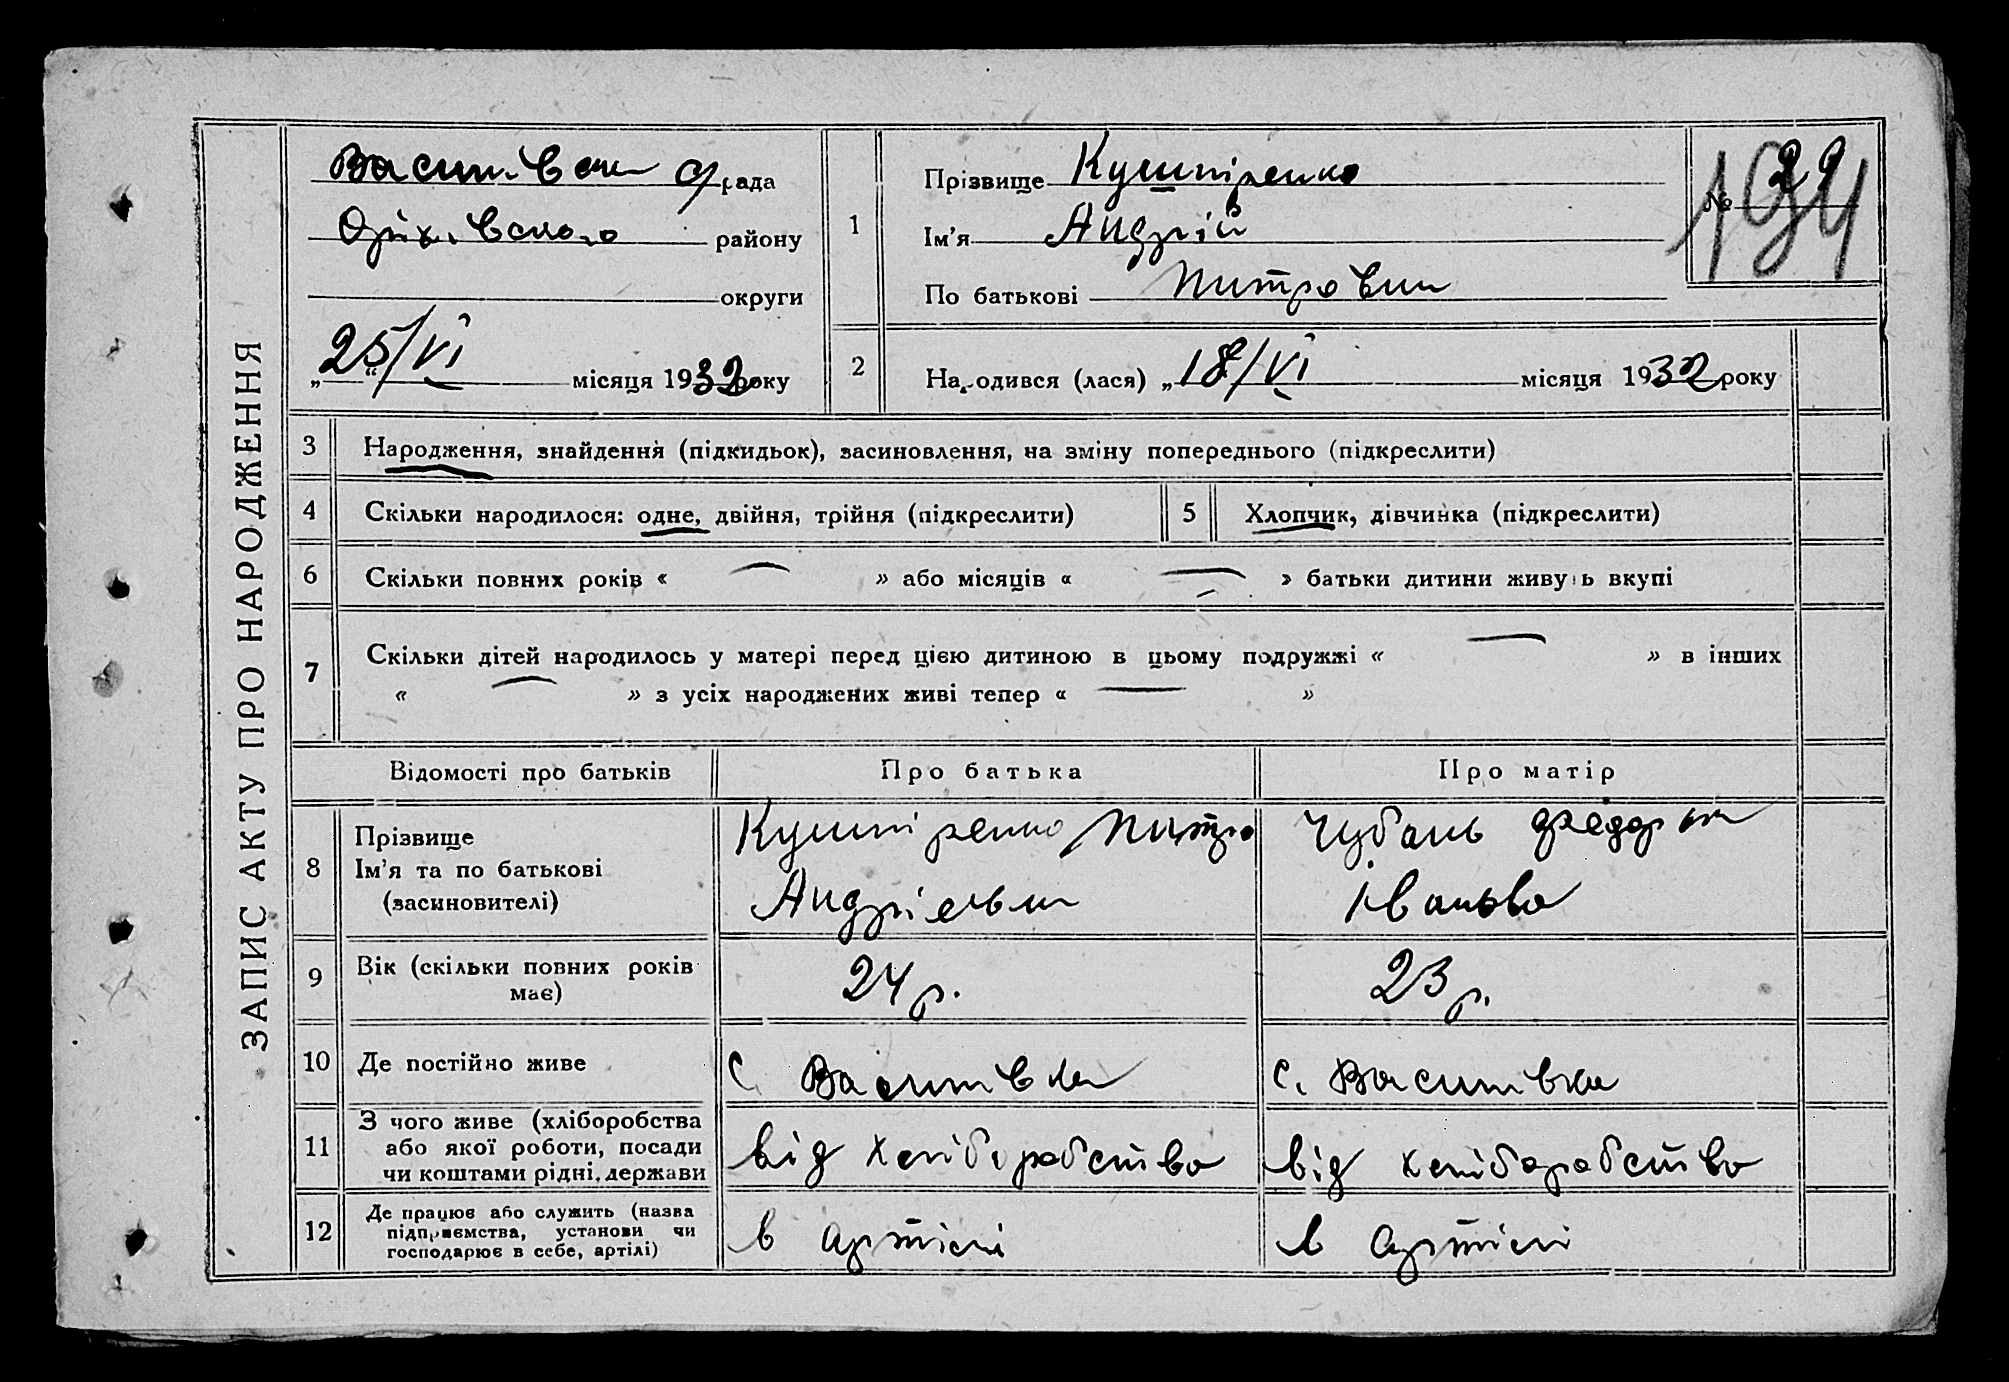 ЗАПИС АКТУ ПРО НАРОДЖЕННЯ
рада
Оріхівського району
округи
„25/VI“ місяця 1932 року
1
Прізвище Кушніренко
Ім'я Андрій
По батькові Митрович
№ 29
194
2
Народився (лася) „18/VI місяця 1932 року
3 Народження, знайдення (підкидьок), засиновлення, на зміну попереднього (підкреслити)
4 Скільки народилося: одне, двійня, трійня (підкреслити)
5 Хлопчик, дівчинка (підкреслити)
6 Скільки повних років « — » або місяців « — » батьки дитини живуть вкупі
7 Скільки дітей народилось у матері перед цією дитиною в цьому подружжі « — » в інших
« — » з усіх народжених живі тепер « — »
Відомості про батьків Про батька Про матір
8 Прізвище
Ім'я та по батькові
(засиновителі)
Кушніренко Митро
Андрієвич
Чубань
Івановна
9 Вік (скільки повних років
має)
24 р. 23 р.
10 Де постійно живе с. Василівка с. Василівка
11 З чого живе (хліборобства
або якої роботи, посади
чи коштами рідні, держави
від хліборобства від хліборобства
12 Де працює або служить (назва
підприємства, установи чи
господарює в себе, артілі)
в артілі в артілі